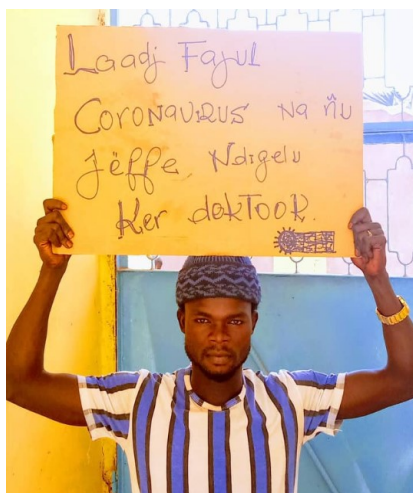 Laadj Fajul
CORONAVIRUS Na ñu
Jëffe Ndigelu
Ker dokTooR.